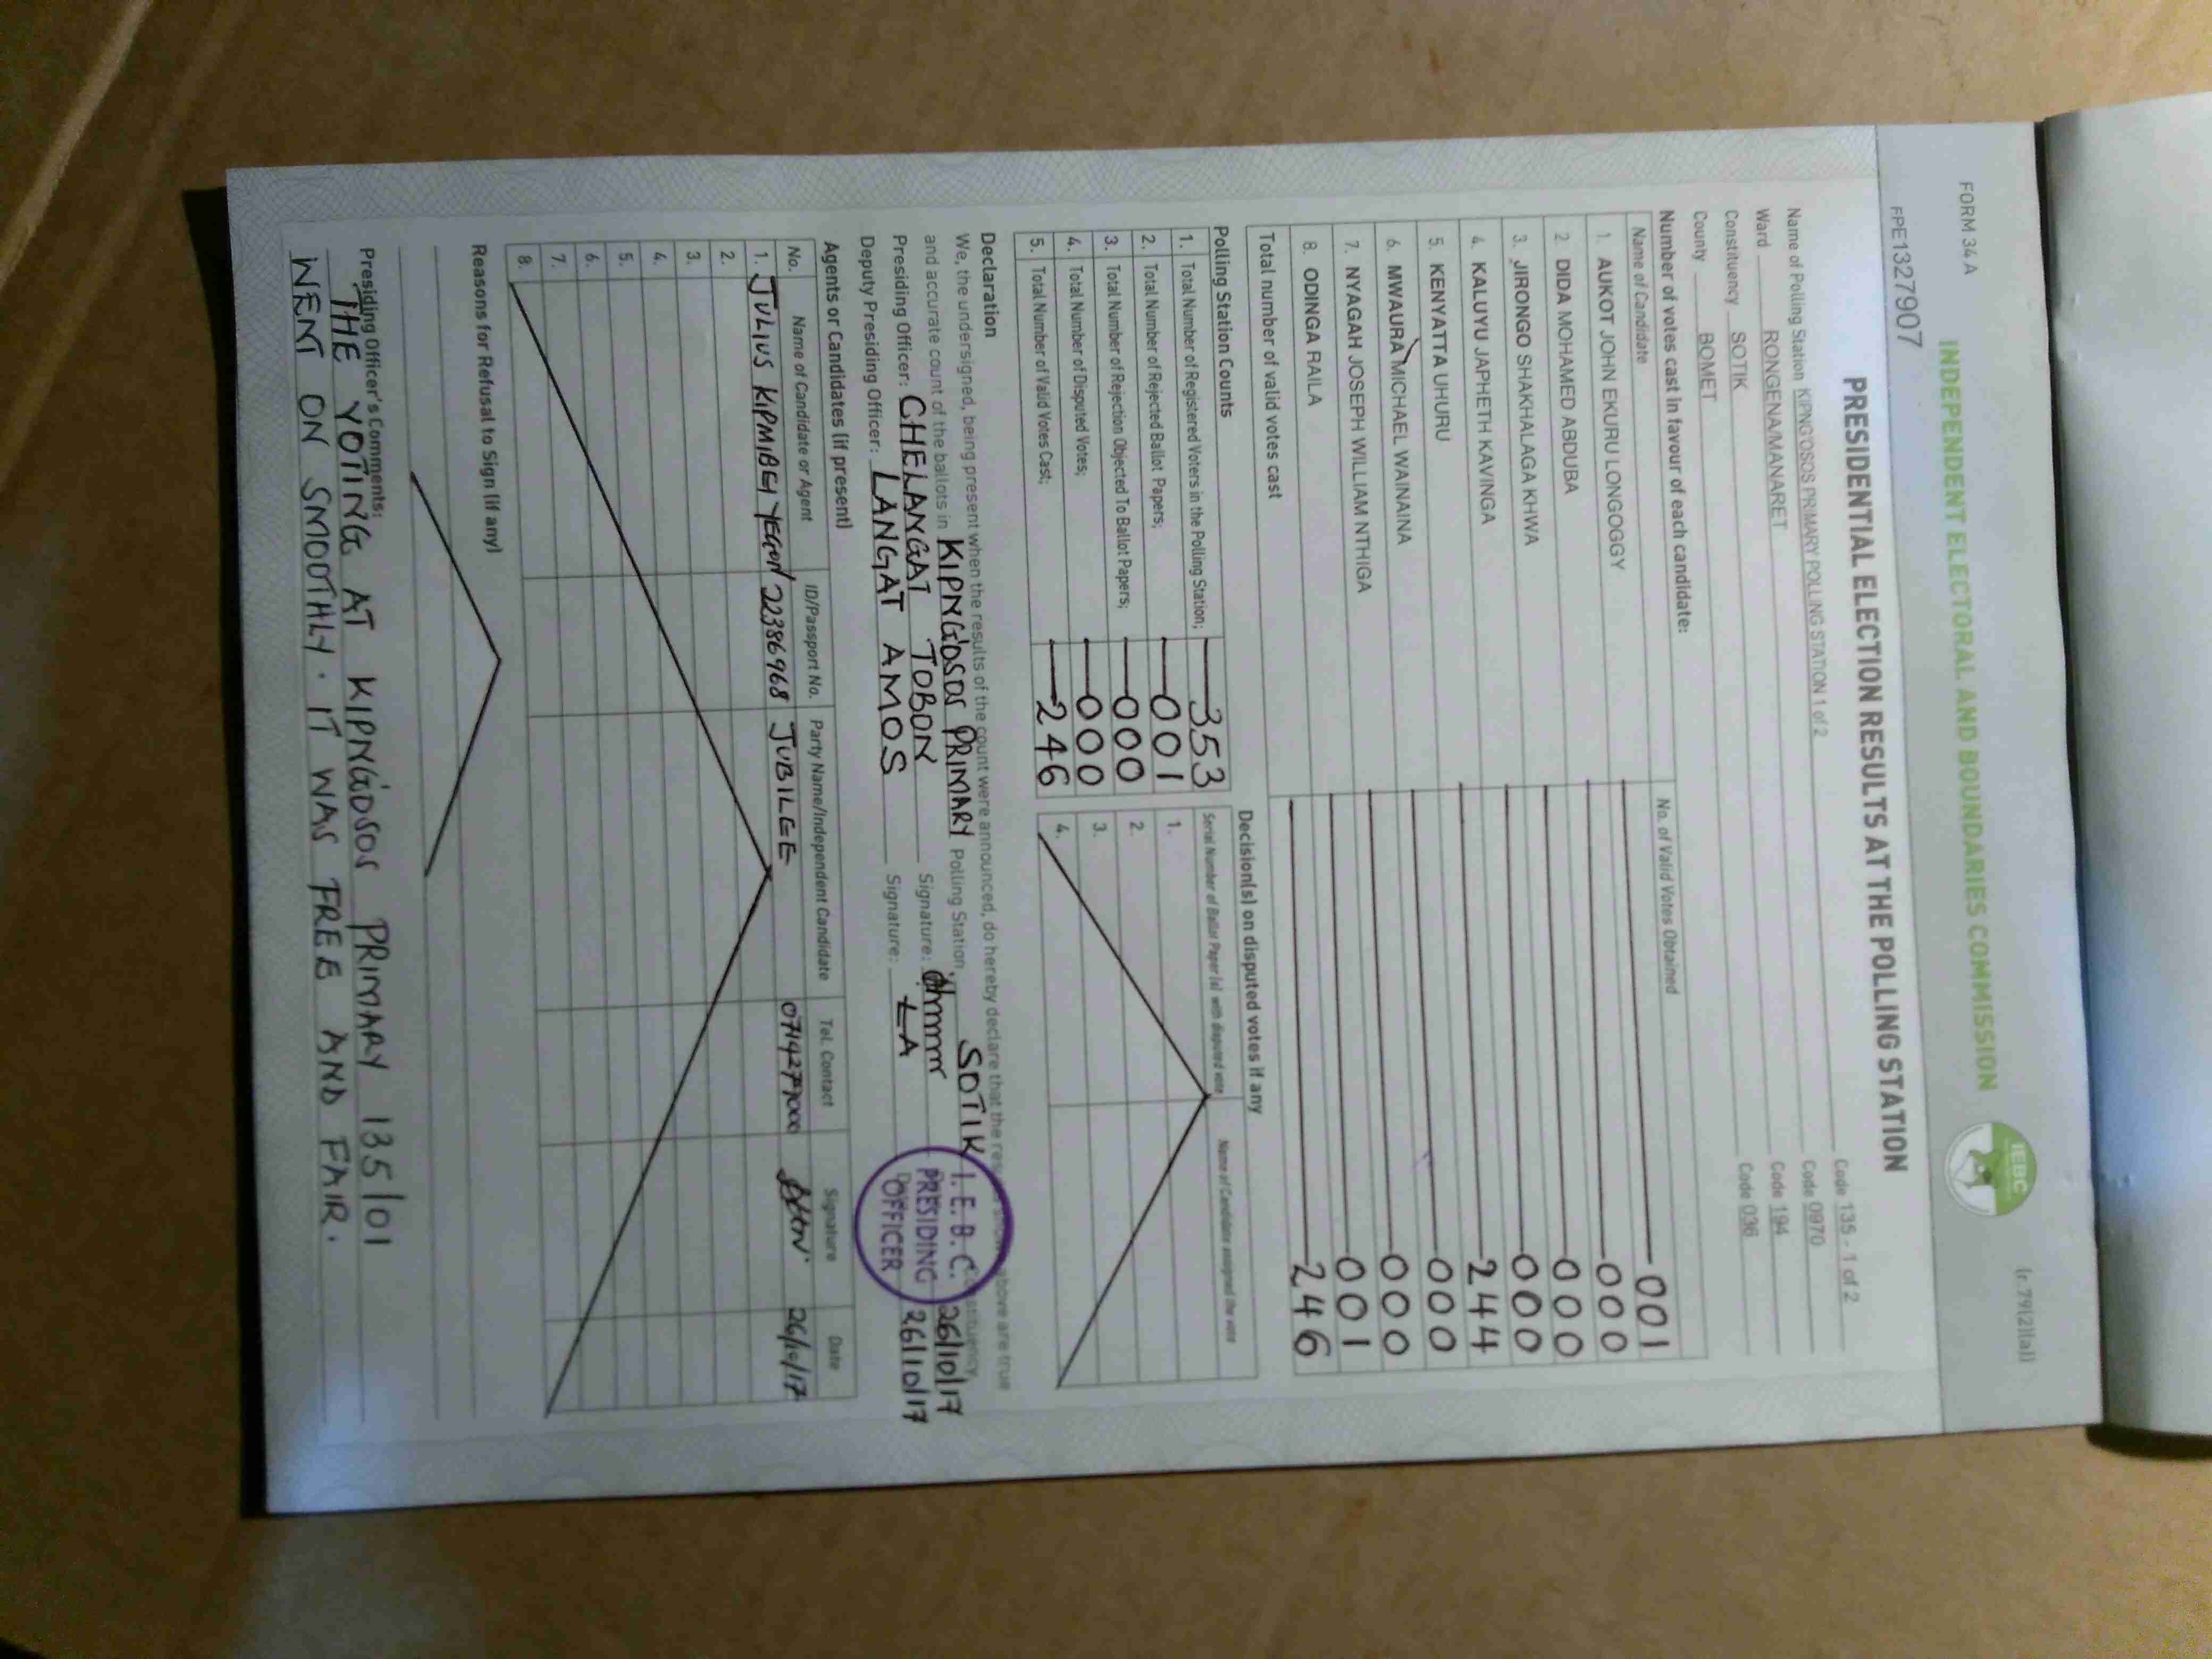 FORM 34 A (r.79(2)(a))
INDEPENDENT ELECTORAL AND BOUNDARIES COMMISSION IEBC
FPE1327907
PRESIDENTIAL ELECTION RESULTS AT THE POLLING STATION
Name of Polling Station KIPNG'OSOS PRIMARY POLLING STATION 1 of 2 Code 135 - 1 of 2
Ward RONGENA/MANARET Code 0970
Constituency SOTIK Code 194
County BOMET Code 036
Number of votes cast in favour of each candidate:
Name of Candidate No. of Valid Votes Obtained
1. AUKOT JOHN EKURU LONGOGGY 001
2 DIDA MOHAMED ABDUBA 000
3. JIRONGO SHAKHALAGA KHWA 000
4. KALUYU JAPHETH KAVINGA 000
5. KENYATTA UHURU 244
6. MWAURA MICHAEL WAINAINA 000
7. NYAGAH JOSEPH WILLIAM NTHIGA 000
8. ODINGA RAILA 001
Total number of valid votes cast 246
Polling Station Counts
1. Total Number of Registered Voters in the Polling Station; 353
2. Total Number of Rejected Ballot Papers; 001
3. Total Number of Rejection Objected To Ballot Papers; 000
4. Total Number of Disputed Votes; 000
5. Total Number of Valid Votes Cast; 246
Decision(s) on disputed votes if any
Serial Number of Ballot Paper (s) with disputed vote Name of Candidate assigned the vote
1.
2.
3.
4.
Declaration
We, the undersigned, being present when the results of the count were announced, do hereby declare that the results shown above are true
and accurate count of the ballots in KIPNG'OSOS PRIMARY Polling Station, SOTIK Constituency
Presiding Officer: CHELANGAT TOBON Signature: 26/10/17
Deputy Presiding Officer: LANGAT AMOS Signature: LA 26/10/17
I.E.B.C.
PRESIDING
OFFICER
Agents or Candidates (if present)
No. Name of Candidate or Agent ID/Passport No. Party Name/Independent Candidate Tel. Contact Signature Date
1. JULIUS KIPMIBEI YEGON 22386968 JUBILEE 0714277000 26/10/17
2.
3.
4.
5.
6.
7.
8.
Reasons for Refusal to Sign (if any)
Presiding Officer's Comments:
THE VOTING AT KIPNG'OSOS PRIMARY 135/01
WENT ON SMOOTHLY. IT WAS FREE AND FAIR.